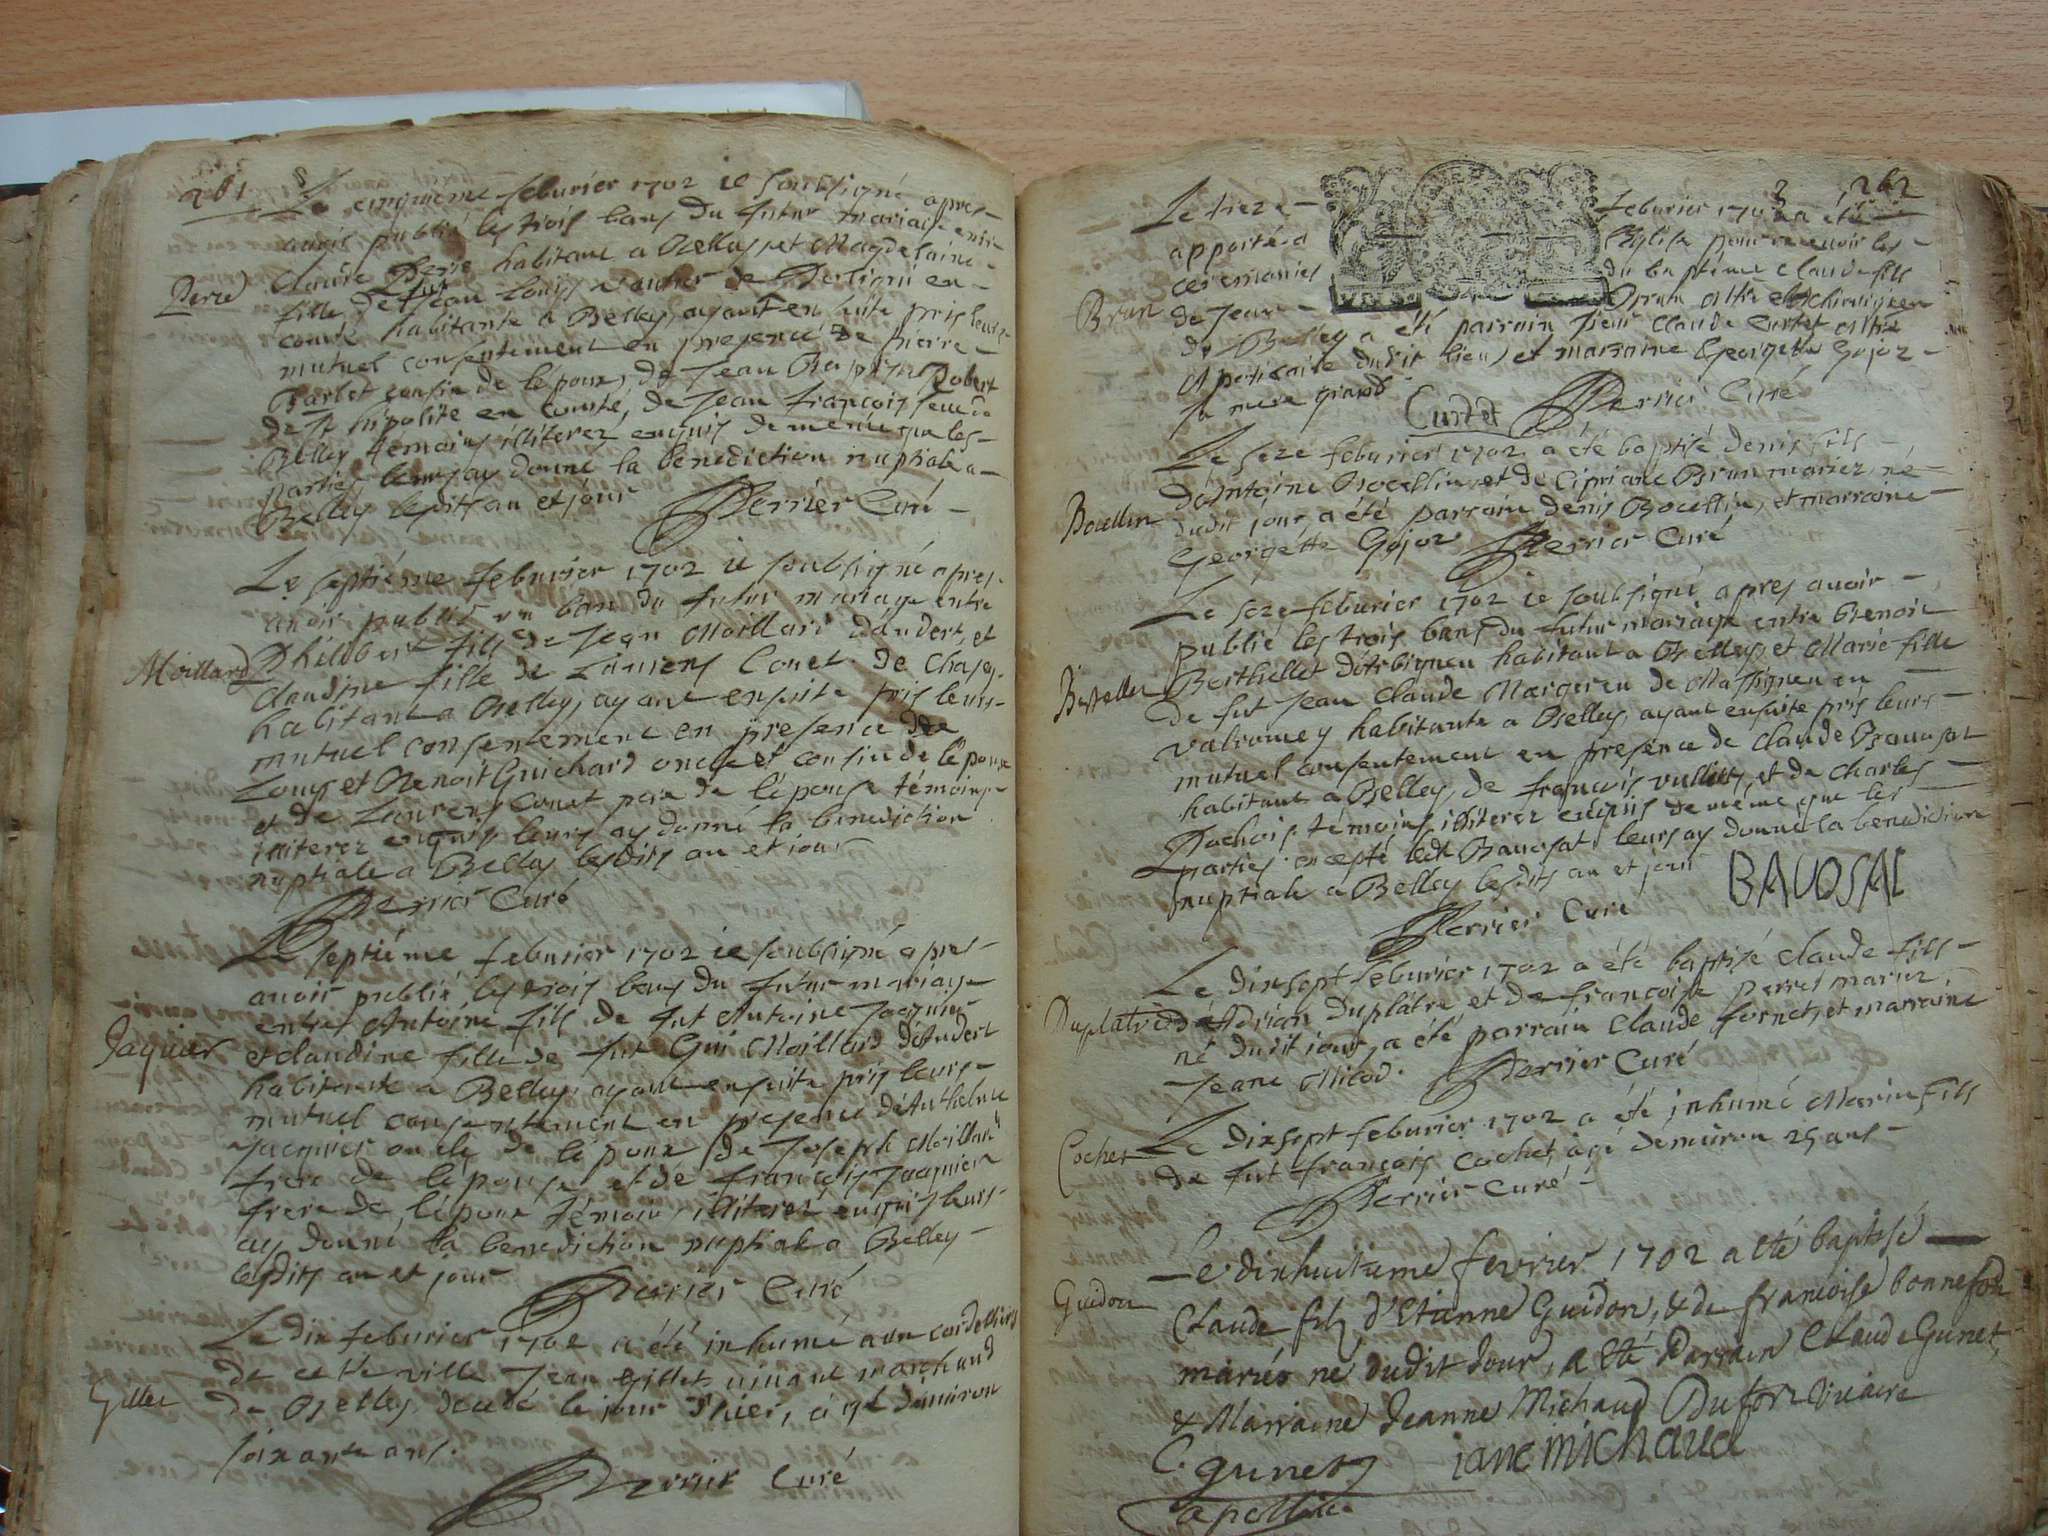 261
Le cinquième feburier 1702 ie soubsigné apres
avoir publié les trois bans du futur mariage entre
Claude Perre habitant a Belley et Magdelaine
Perre
fille de fut Jean Louis de en
comté habitante a Belley, ayant en suite pris leurs
mutuel consentement en presence de pierre
Barbet cousin de l'epoux, de Jean Robert
de St hipolite en Comté, de Jean françois
Belley temoins illiterez enquis de meme que les
parties leurs ay donné la benediction nuptiale a
Belley lesdits an et jour Perrier Curé
Le septiéme feburier 1702 ie soubsigné apres
avoir publié un ban du futur mariage entre
Moillard
Philibert fils de Jean Moillard d'Andert, et
claudine fille de Laurens Couet de Chasey
habitant a Belley, ayant ensuite pris leurs
mutuel consentement en presence de
Louys et Benoit Guichard oncle et cousin de l'epoux
et de Laurens Couet pere de l'épouse témoins
illiterez enquis leurs ay donné la benediction
nuptiale a Belley lesdits an et iour
Perrier Curé
Le septiéme feburier 1702 ie soubsigné apres
avoir publié les trois bans du futur mariage
entre Antoine fils de fut Antoine Jacquier
Jaquier
et claudine fille de fut Gui Moillard d'Andert
habitante a Belley ayant ensuite pris leurs
mutuel consentement en presence d'Anthelme
Jacquier oncle de l'époux de Joseph Moillard
frere de l'épouse et de françois Jacquier
frere de l'époux témoins illiterez enquis leurs
ay donné la benediction nuptiale a Belley
lesdits an et jour Perrier Curé
Le dix feburier 1702 a été inhumé aux cordelliers
de cette ville Jean Gillet vivant marchand
Gillet
de Belley decedé le jour d'hier, agé d'environ
soixante ans.
Perrier Curé
262
Le treze feburier 1702 a été
apporté a l'Eglise pour recevoir les
ceremonies du baptéme claude fils
Brun
de Jean Brun Mtre chirurgien
de Belley a été parrain sieur Claude Curtet Mtre
Apoticaire dudit lieu, et marraine Georgette Gojoz
sa mere grand
Curtet Perrier Curé
Le seze feburier 1702 a été baptisé denis fils
d'Antoine Bocellin et de Cipriane Brun mariez, né
Bocellin
dudit jour, a été parrain denis Bocellin, et marraine
Georgette Gojoz Perrier Curé
Le seze feburier 1702 ie soubsigné apres avoir
publié les trois bans du futur mariage entre Benoit
Bertellet
Berthellet d'Arbignieu habitant a Belley et Marie fille
de fut Jean Claude Margeren de Massignieu en
valromey habitante a Belley, ayant ensuite pris leurs
mutuel consentement en presence de claude Bavosat
habitant a Belley, de françois et de charles
Pachois témoins illiterez enquis de même que les
parties excepté ledt Bavosat, leurs ay donné la benediction
nuptiale a Belley lesdits an et jour
BAVOSAT
Perrier Curé
Le dixsept feburier 1702 a été baptisé claude fils
Duplatre
d'Adrian Duplâtre, et de françoise perret mariez
né dudit iour, a été parrain Claude fornet, et marraine
Jeane Milod. Perrier Curé
Le dixsept feburier 1702 a été inhumé Marin fils
Cochet
de fut françois Cochet, agé d'environ 25 ans
Perrier Curé
Le dixhuitieme fevrier 1702 a eté baptisé
Guidon
Claude filz d'Etienne Guidon, & de francoise bonnefon
mariés né dudit Jour, a eté Parrain Claude Gunet,
& Marraine Jeanne Michaud Dufor vicaire
C. gunet iane michaud